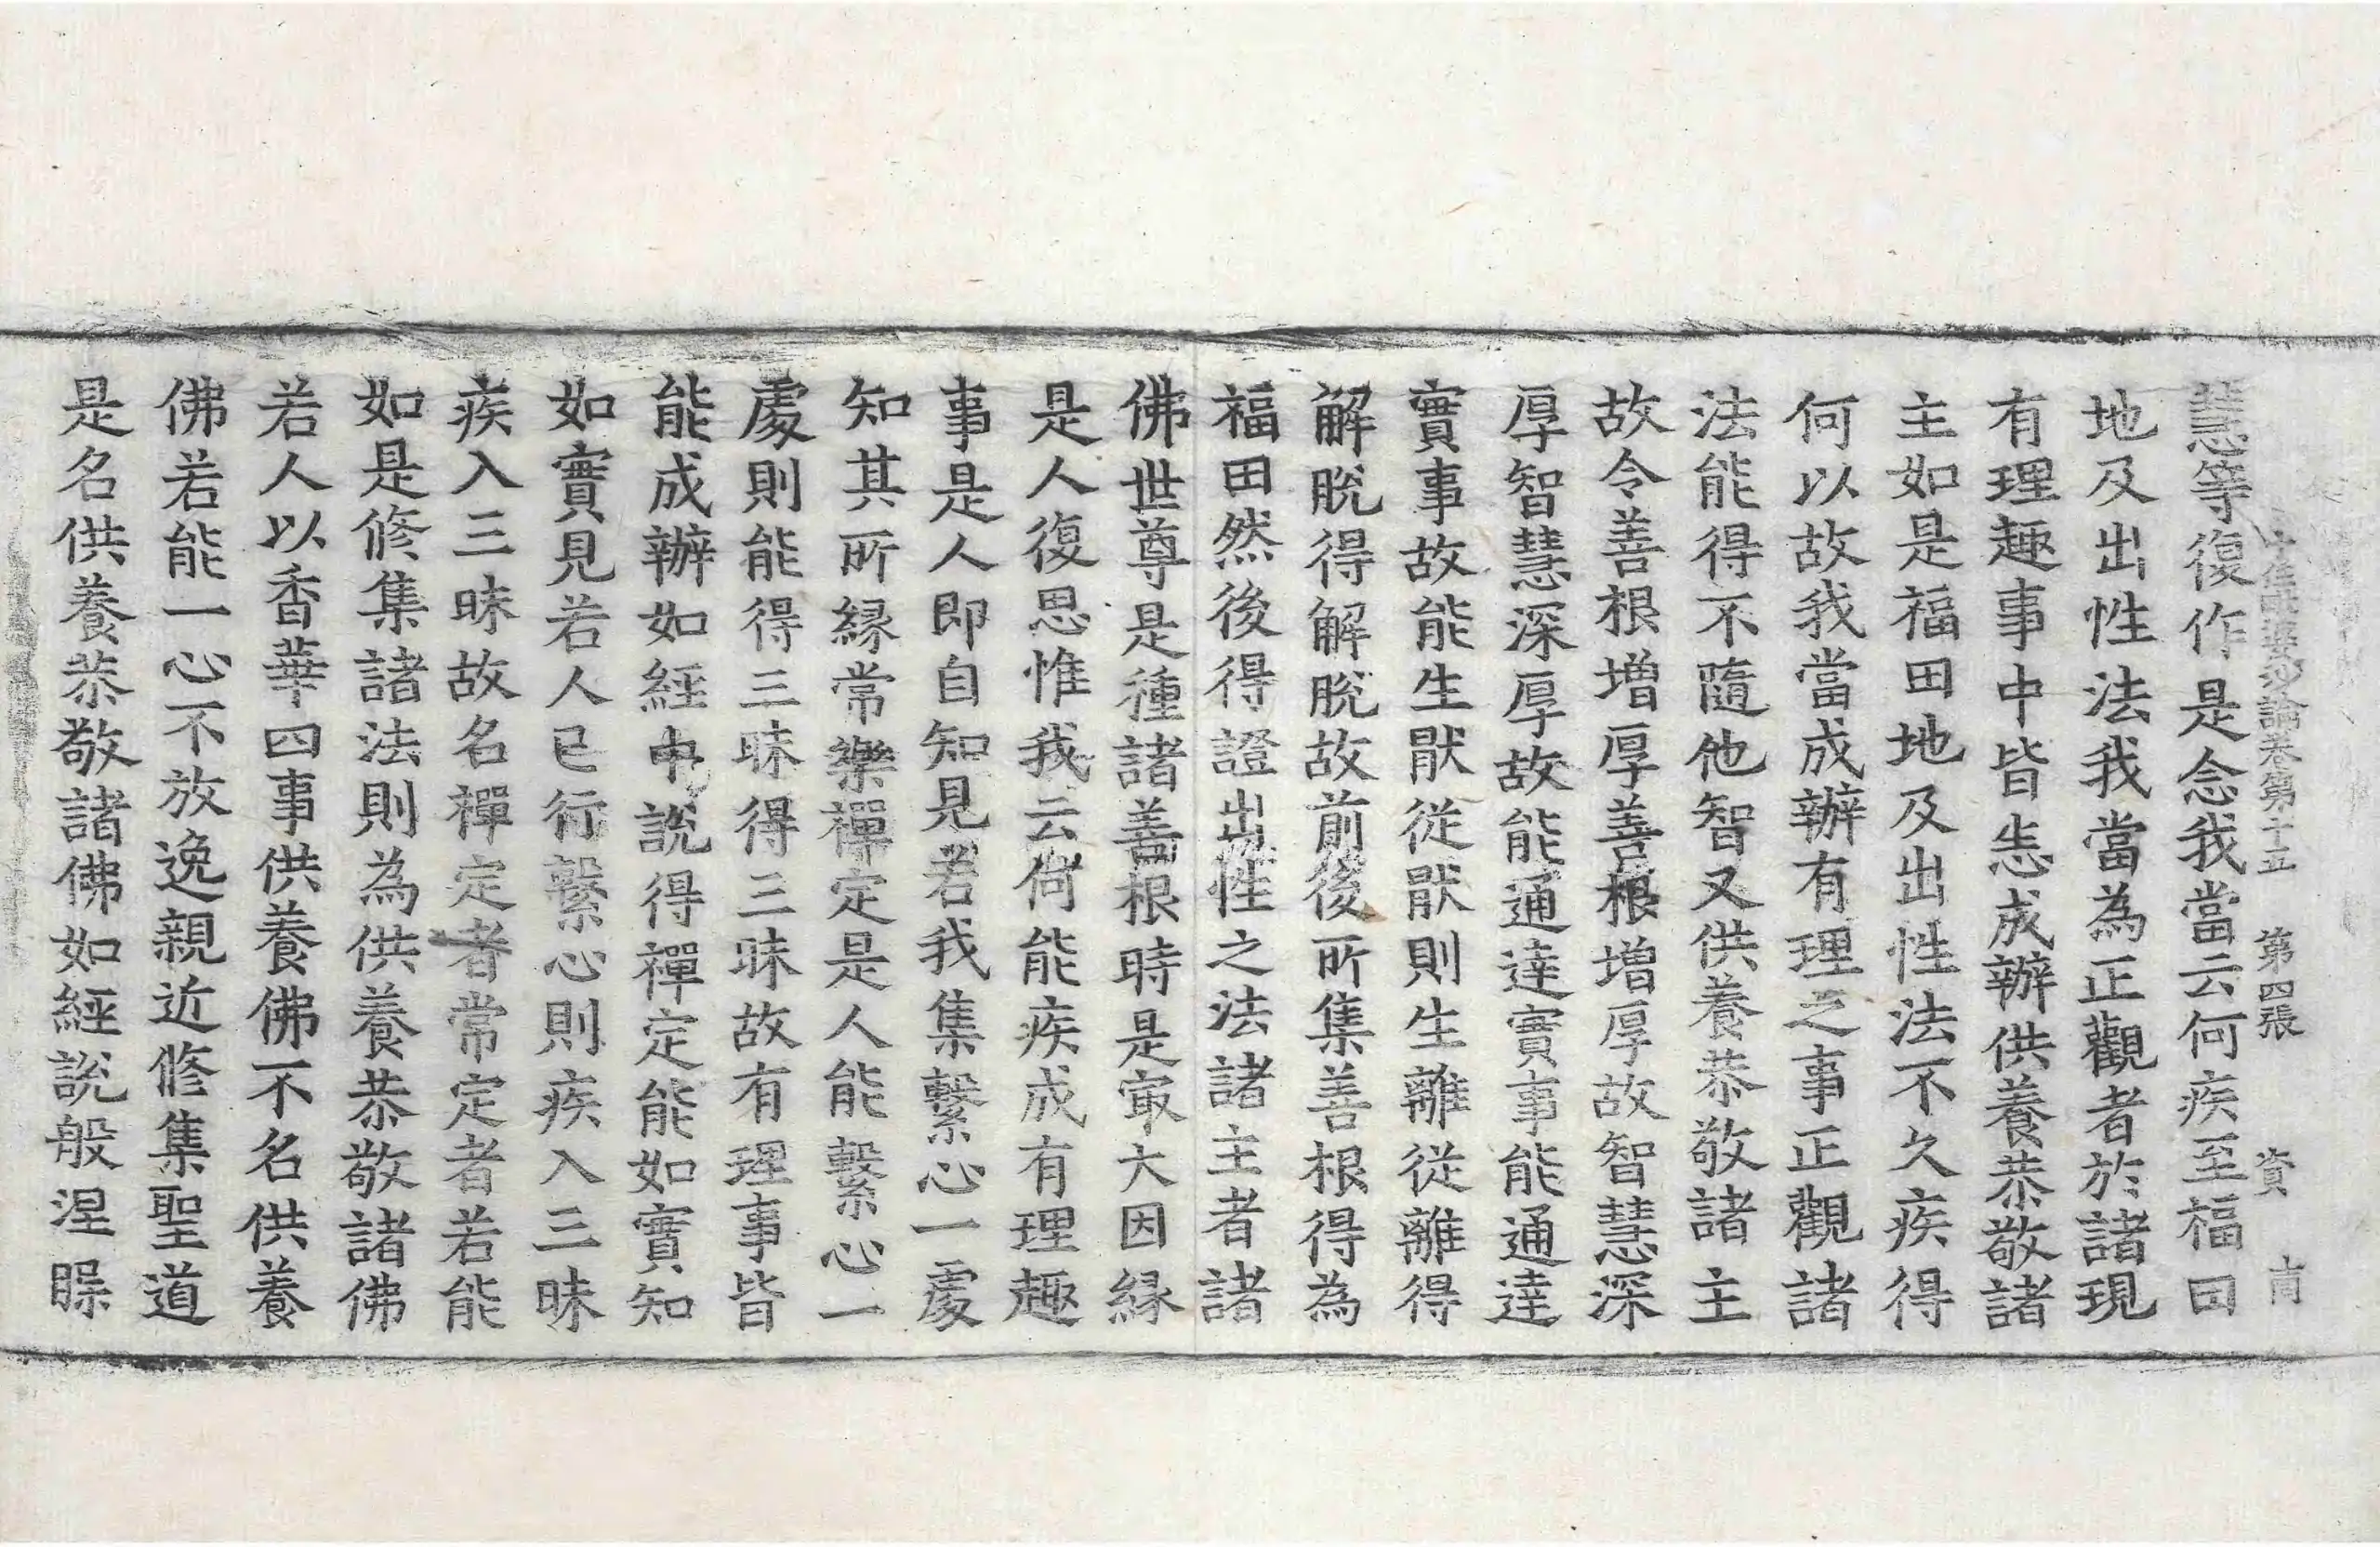 十住毗婆沙論卷第十五 第四張 資 肯
慧等復作是念我當云何疾至福田
地及出性法我當為正觀者於諸現
有理趣事中皆恚成辦供養恭敬諸
主如是福田地及出性法不久疾得
何以故我當成辦有理之事正觀諸
法能得不隨他智又供養恭敬諸主
故令善根增厚善根增厚故智慧深
厚智慧深厚故能通達實事能通達
實事故能生猒從猒則生離從離得
解脫得解脫故前後所集善根得為
福田然後得證出性之法諸主者諸
佛世尊是種諸善根時是冣大因緣
是人復思惟我云何能疾成有理趣
事是人即自知見若我集繫心一處
知其所緣常樂禪定是人能繫心一
處則能得三昧得三昧故有理事皆
能成辦如經中說得禪定能如實知
如實見若人已行繫心則疾入三昧
疾入三昧故名禪定者常定者若能
如是修集諸法則為供養恭敬諸佛
若人以香華四事供養佛不名供養
佛若能一心不放逸親近修集聖道
是名供養恭敬諸佛如經說般涅𣊓